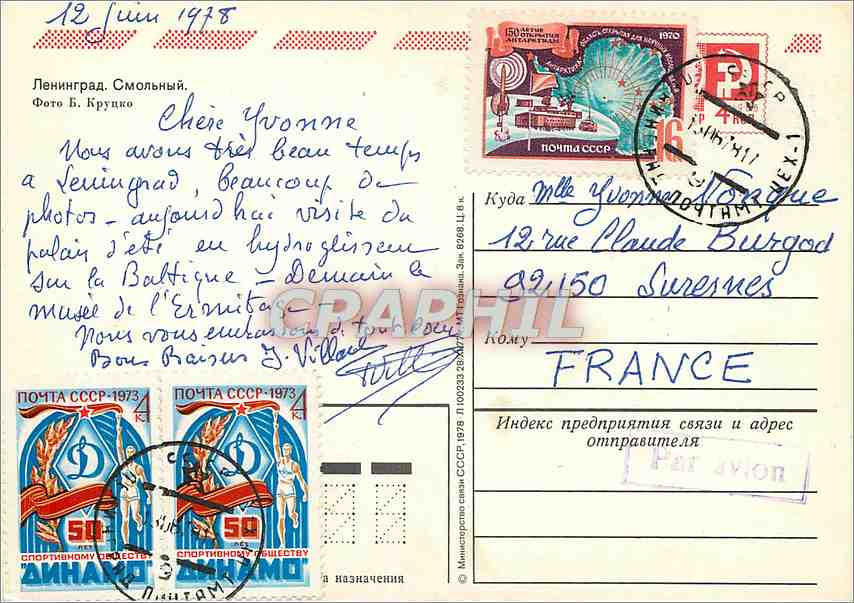 12 Juin 1978
Ленинград. Смольный.
Фото Б. Круцко
Chère Yvonne
Nous avons très beau temps
a Leningrad, beaucoup de
photos - aujourd'hui visite du
palais d'été en hydroglisseur
sur la Baltique - Demain le
musée de l'Ermitage -
Nous vous embrassons de tout coeur
Bons Baisers J. Villard
150-ЛЕТИЕ ОТКРЫТИЯ
АНТАРКТИДЫ
1970
16
ПОЧТА СССР
4
Куда Mlle Yvonne
12, rue Claude Burgod
92150 Suresnes
Кому
FRANCE
Индекс предприятия связи и адрес
отправителя
Par avion
© Министерство связи СССР, 1978
CPAPHIL
ПОЧТА СССР-1973 4к.
Д
50
ЛЕТ
СПОРТИВНОМУ ОБЩЕСТВУ
"ДИНАМО"
ПОЧТА СССР-1973 4к.
Д
50
СПОРТИВНОМУ ОБЩЕСТВУ
"ДИНАМО"
а назначения